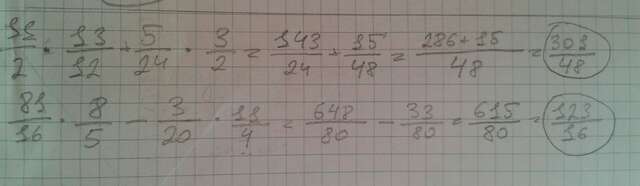 11/2 · 13/12 + 5/24 · 3/2 = 143/24 + 15/48 = 286+15/48 = 301/48
81/16 · 8/5 - 3/20 · 11/4 = 648/80 - 33/80 = 615/80 = 123/16